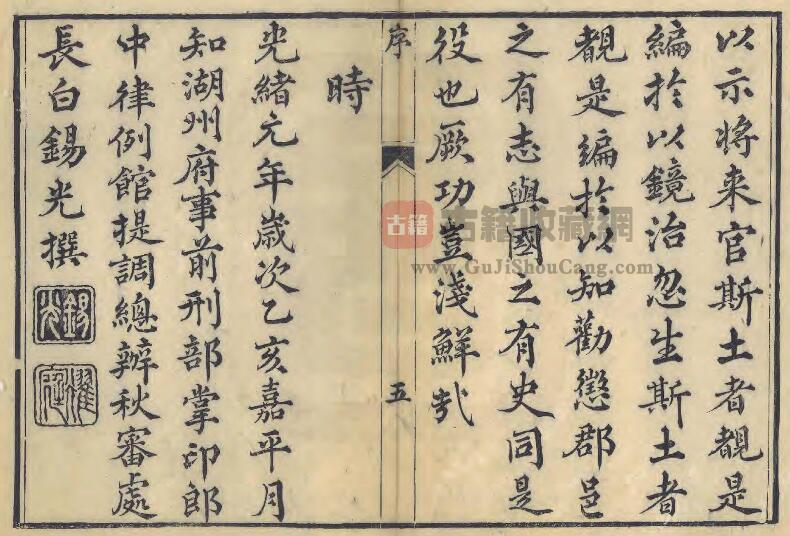 以示將来官斯土者覩是
編扵以鏡治忽生斯土者
覩是編扵以知勸懲郡邑
之有志與國之有史同是
役也厥功豈淺鮮㢤
時
光緒元年嵗次乙亥嘉平月
知湖州府事前刑部掌印郎
中律例館提調總辦秋審處
長白錫光撰
錫光
序
五
古籍
古籍收藏網
www.GuJiShouCang.com